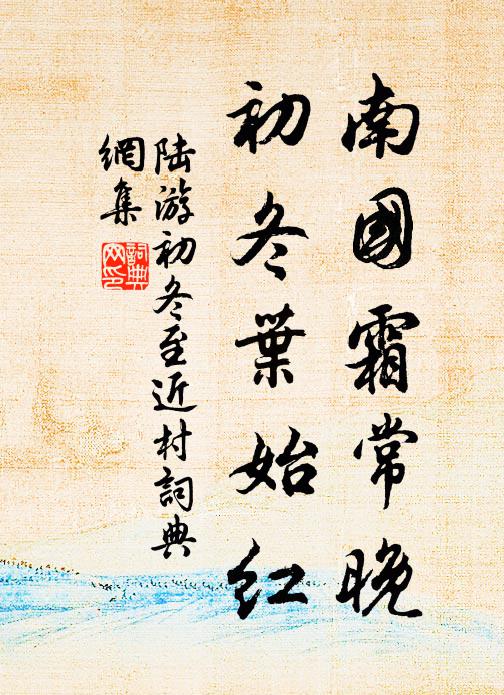 南國霜常晚
初冬葉始红
陆游初冬至近村詞典
網集
詞典
网印